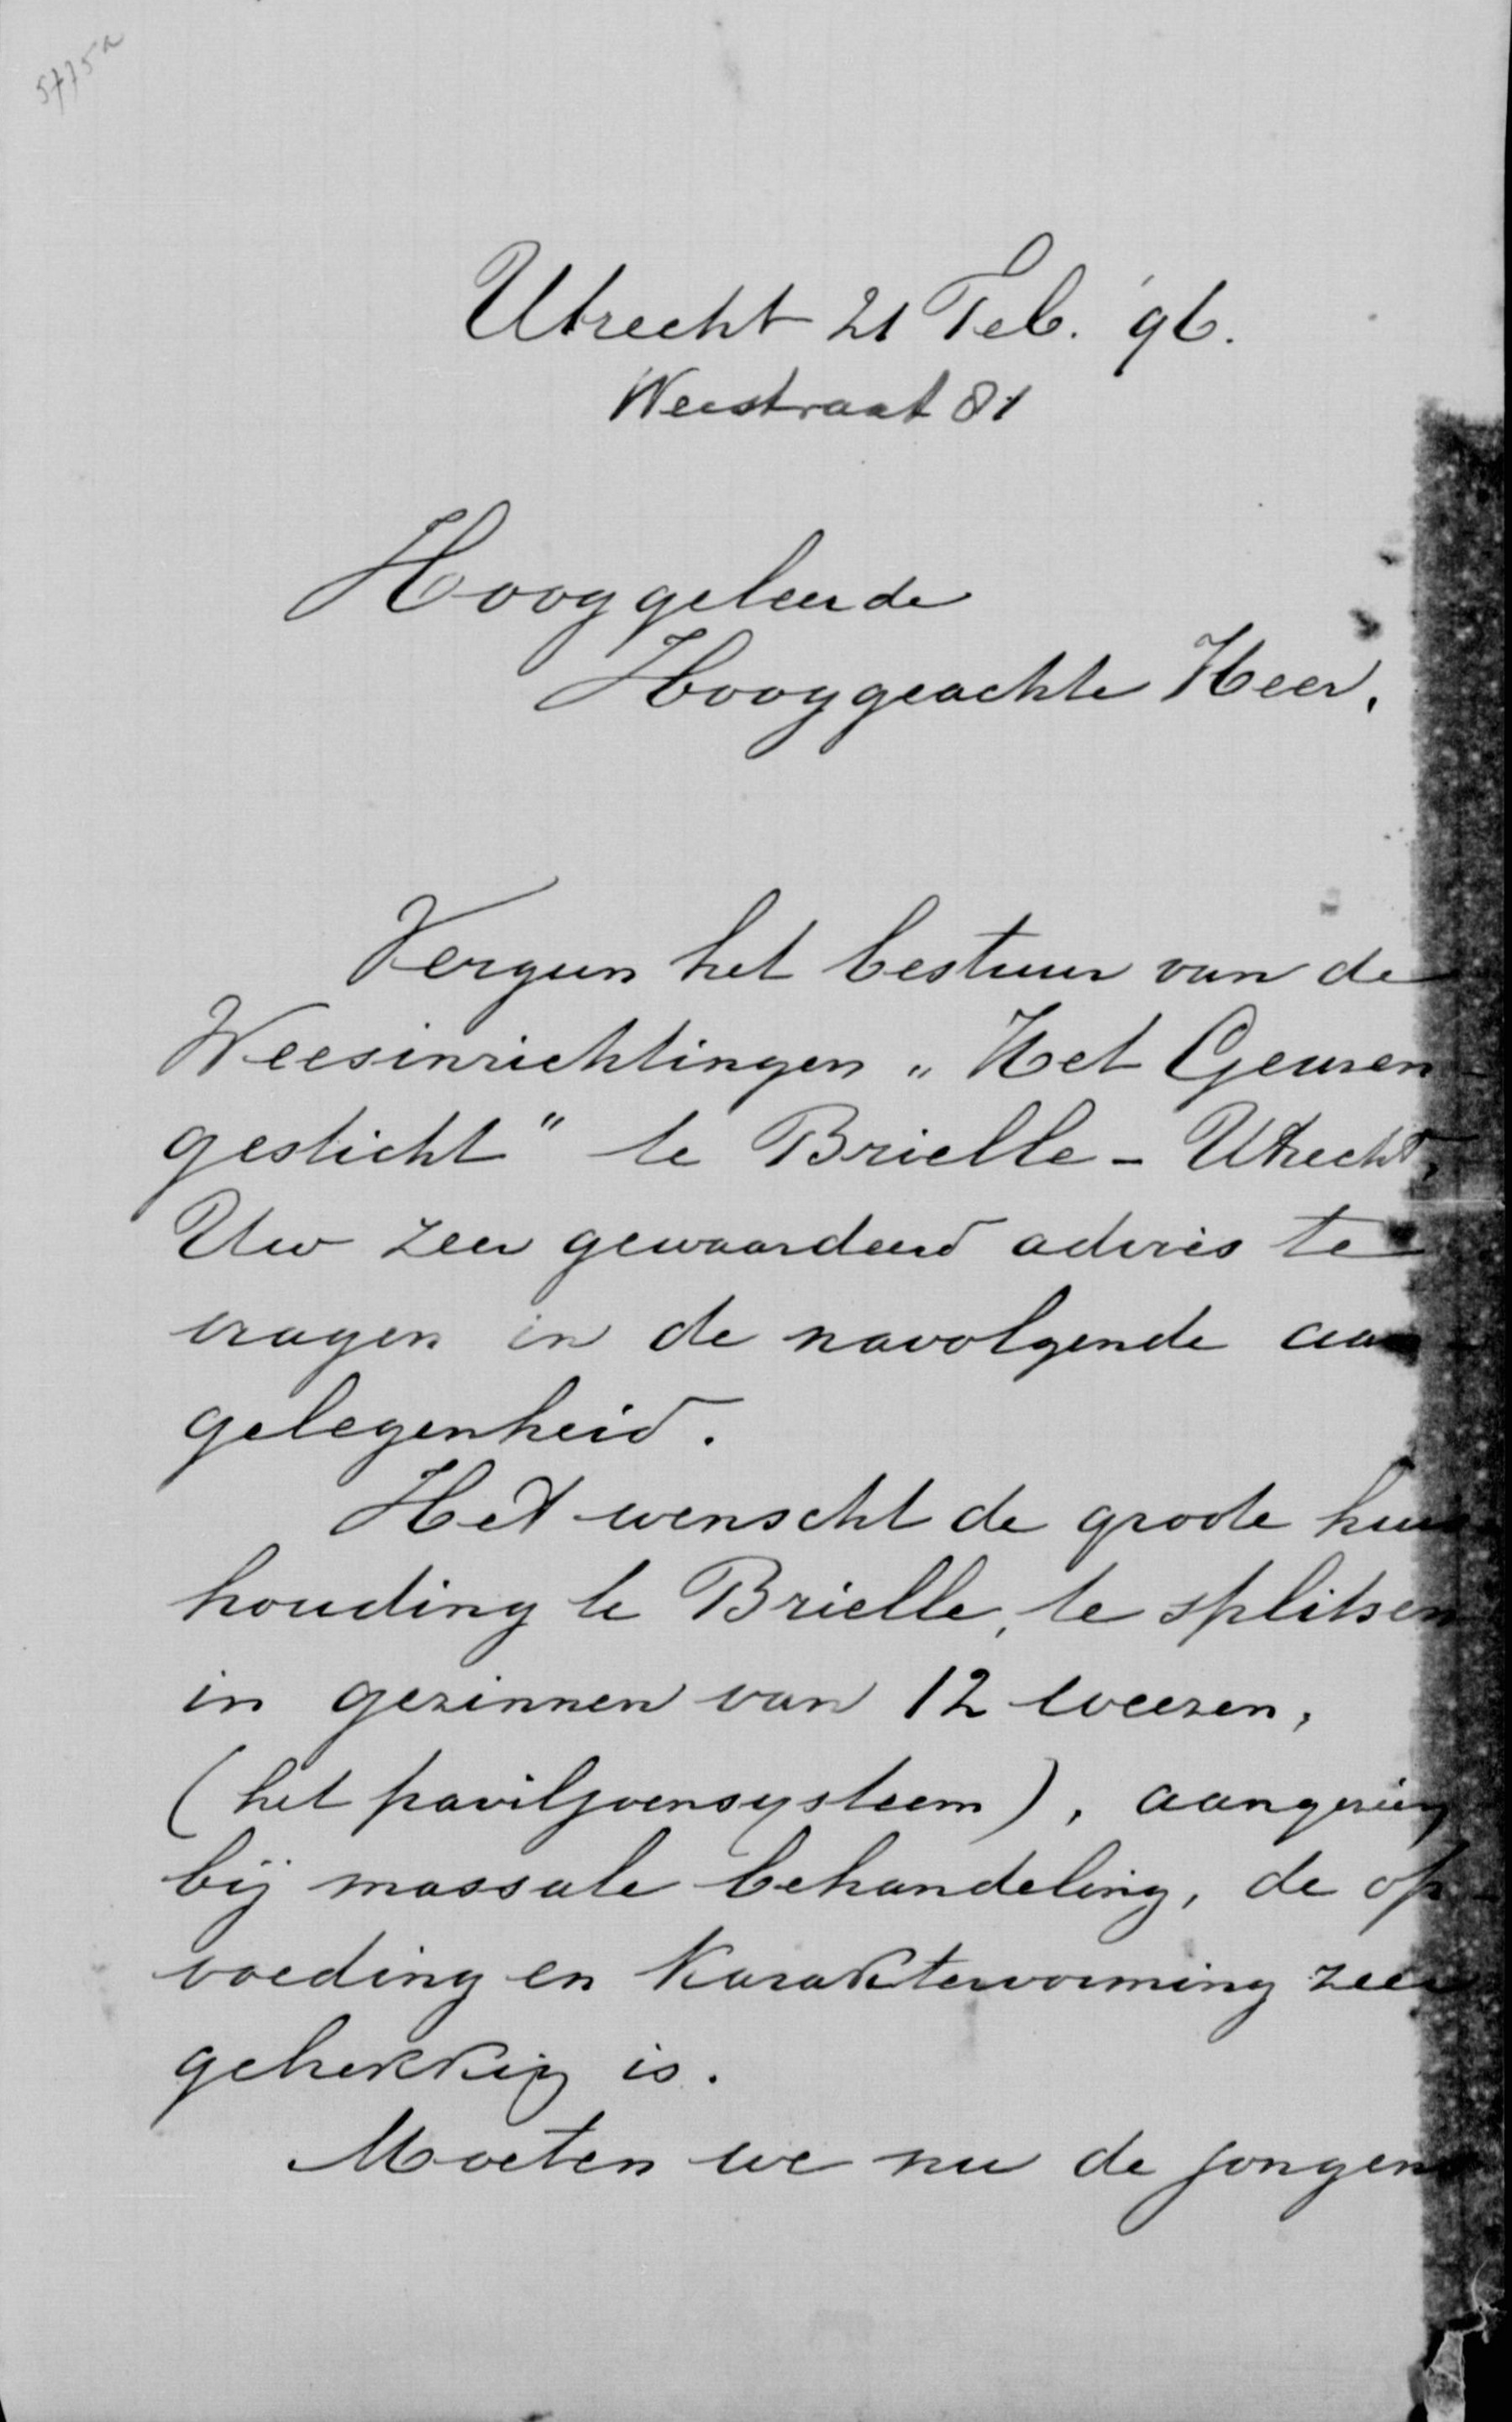 5775a
Utrecht 21 Feb. '96.
Weistraat 81
Hooggeleerde
Hooggeachte Heer,
Vergun het bestuur van de
Weesinrichtingen „Het Geuzen-
gesticht" te Brielle - Utrecht,
Uw zeer gewaardeerd advies te
vragen in de navolgende aan
gelegenheid.
Het wenscht de groote huis
houding te Brielle, te splitsen
in gezinnen van 12 weezen,
(het paviljoensysteem), aangezien
bij massale behandeling, de op-
voeding en karaktervorming zeer
gebrekkig is.
Moeten we nu de jongens